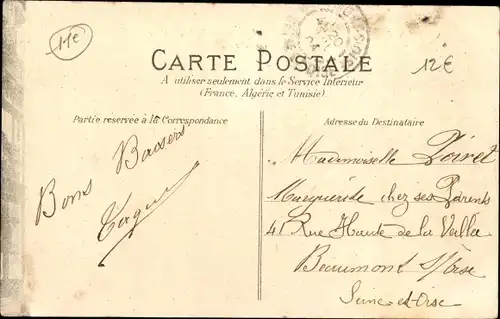 11€
CARTE POSTALE
12€
A utiliser seulement dans le Service Intérieur
(France, Algérie et Tunisie)
Partie réservée à la Correspondance
Adresse du Destinataire
Bons Baisers
Mademoiselle Poiret
Marguerite chez ses Parents
41 Rue Haute de la Vallée
Beaumont s/Oise
Seine-et-Oise